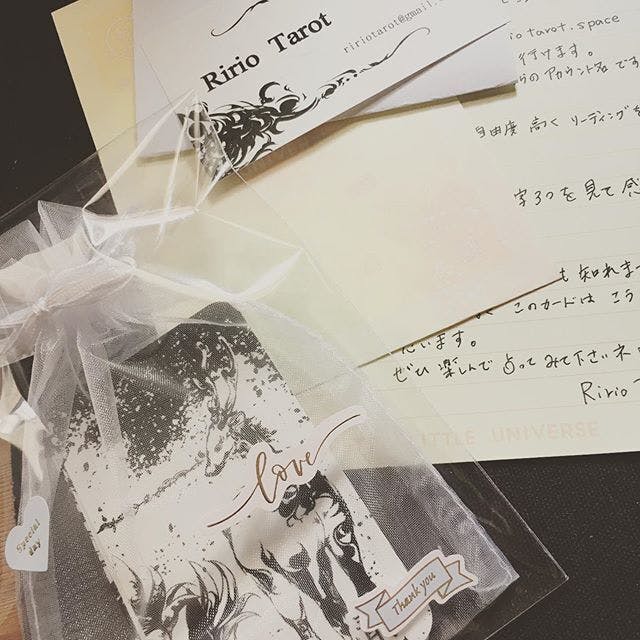 Ririo Tarot
ririotarot@gmail.
io tarot.space
行けます。
らのアカウント名です
自由度 高く リーディングを
字ろつを見て感
も知れま
このカードは こう
思います。
ぜひ 楽しんで 占って みて下さいネ
Ririo
LITTLE UNIVERSE
love
Special
day
Thank you